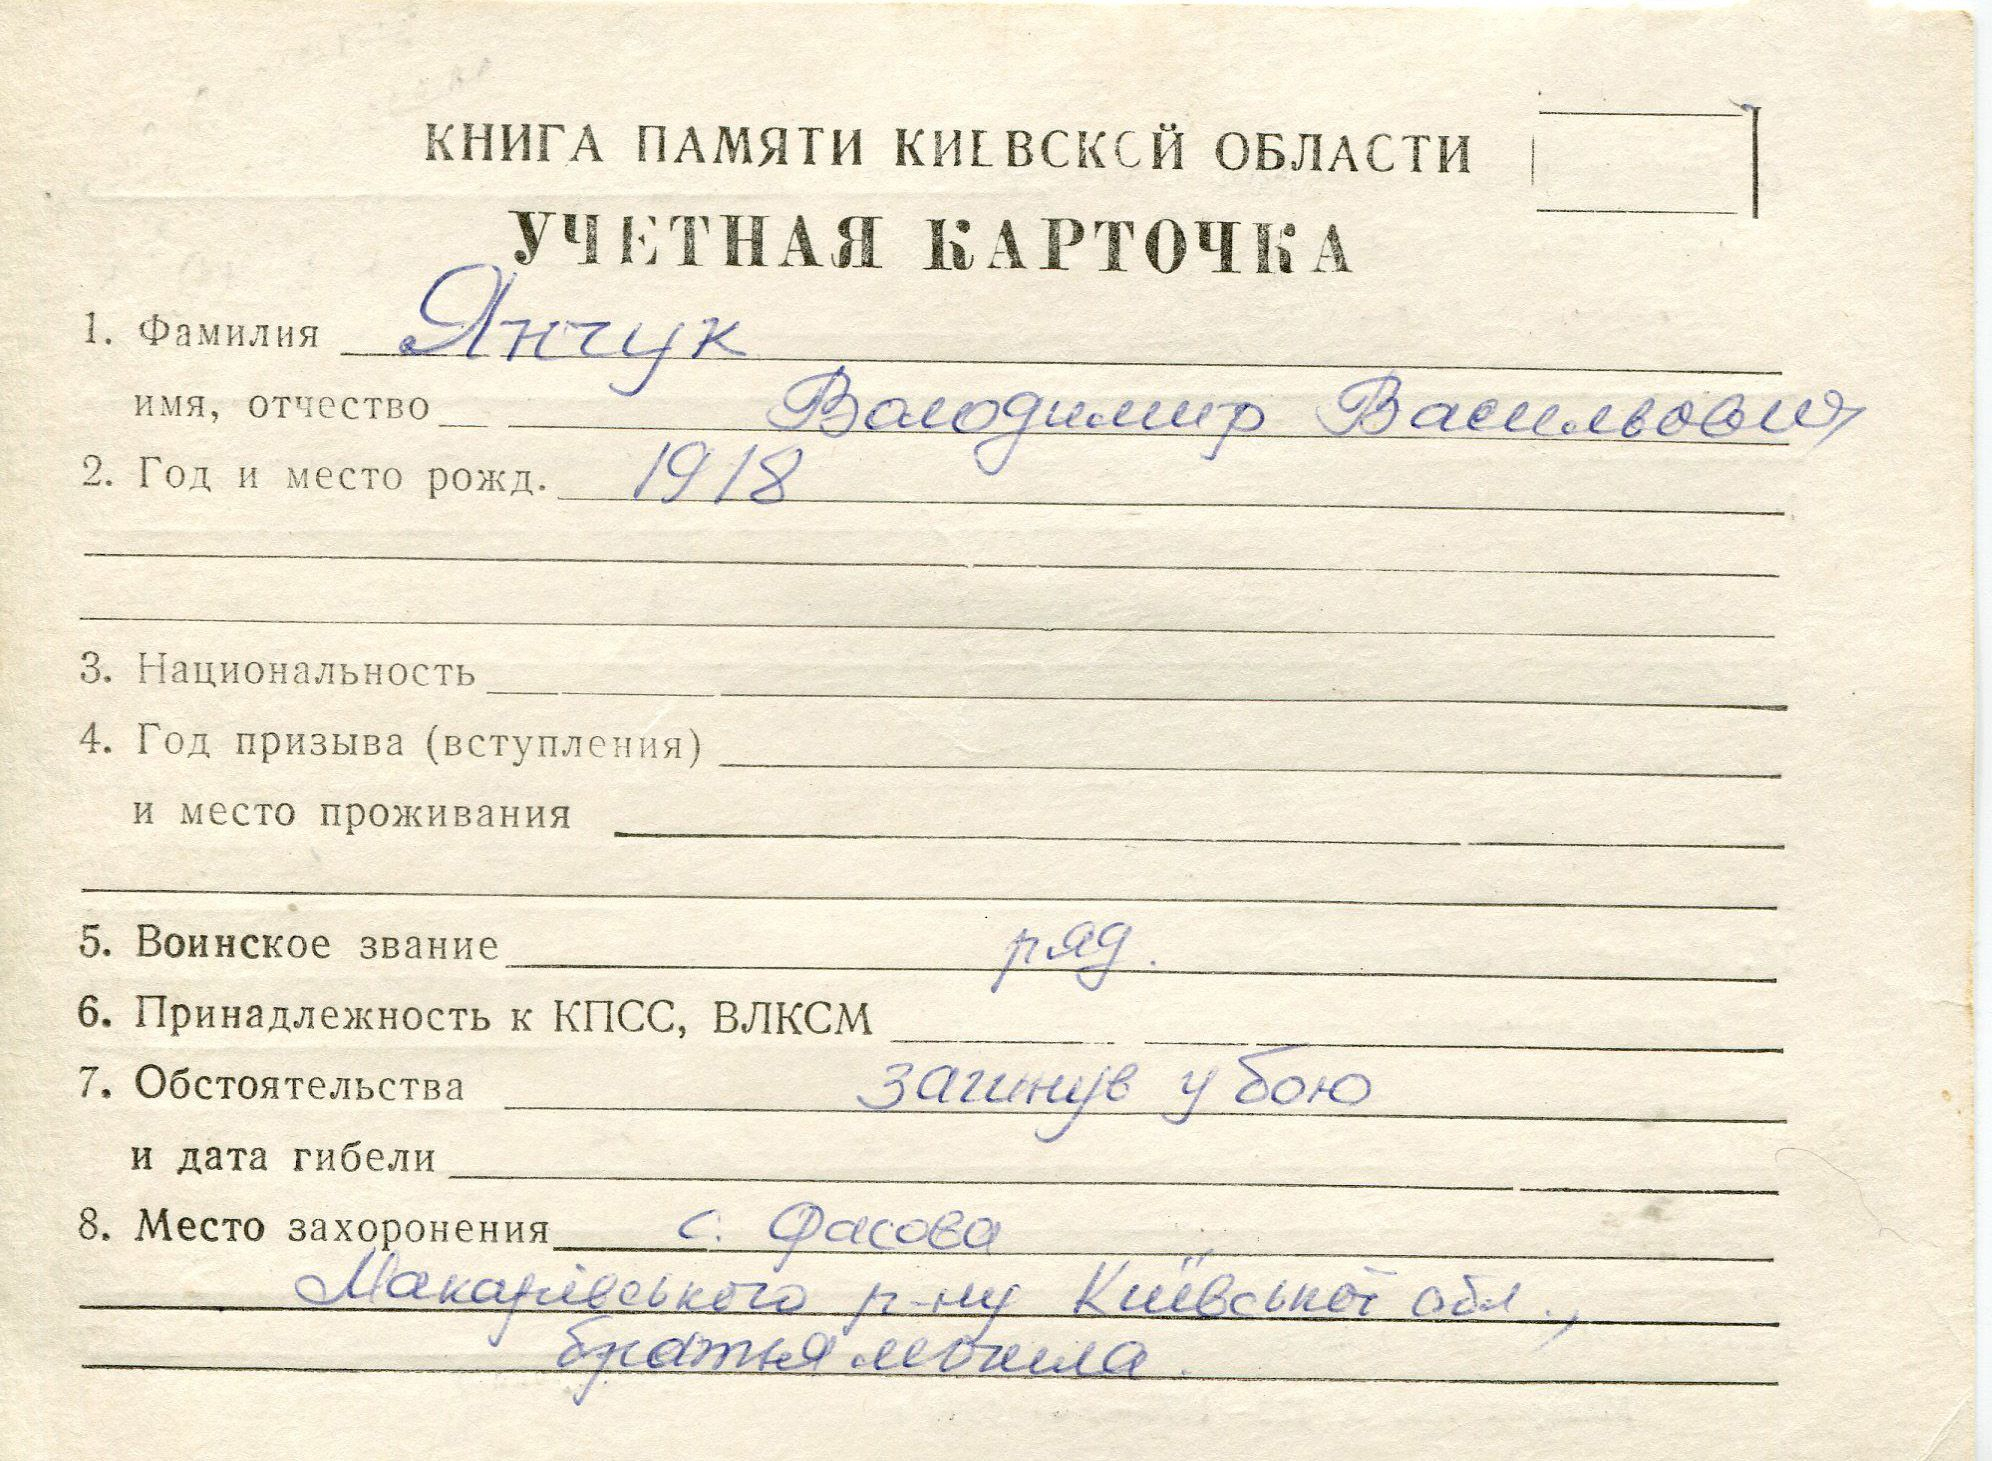 КНИГА ПАМЯТИ КИЕВСКОЙ ОБЛАСТИ
УЧЕТНАЯ КАРТОЧКА
1. Фамилия Янчук
имя, отчество Володимир Васильович
2. Год и место рожд. 1918
3. Национальность
4. Год призыва (вступления)
и место проживания
5. Воинское звание ряд.
6. Принадлежность к КПСС, ВЛКСМ
7. Обстоятельства загинув у бою
и дата гибели
8. Место захоронения с. Фасова
Макарівського р-ну Київської обл.,
братья могила.